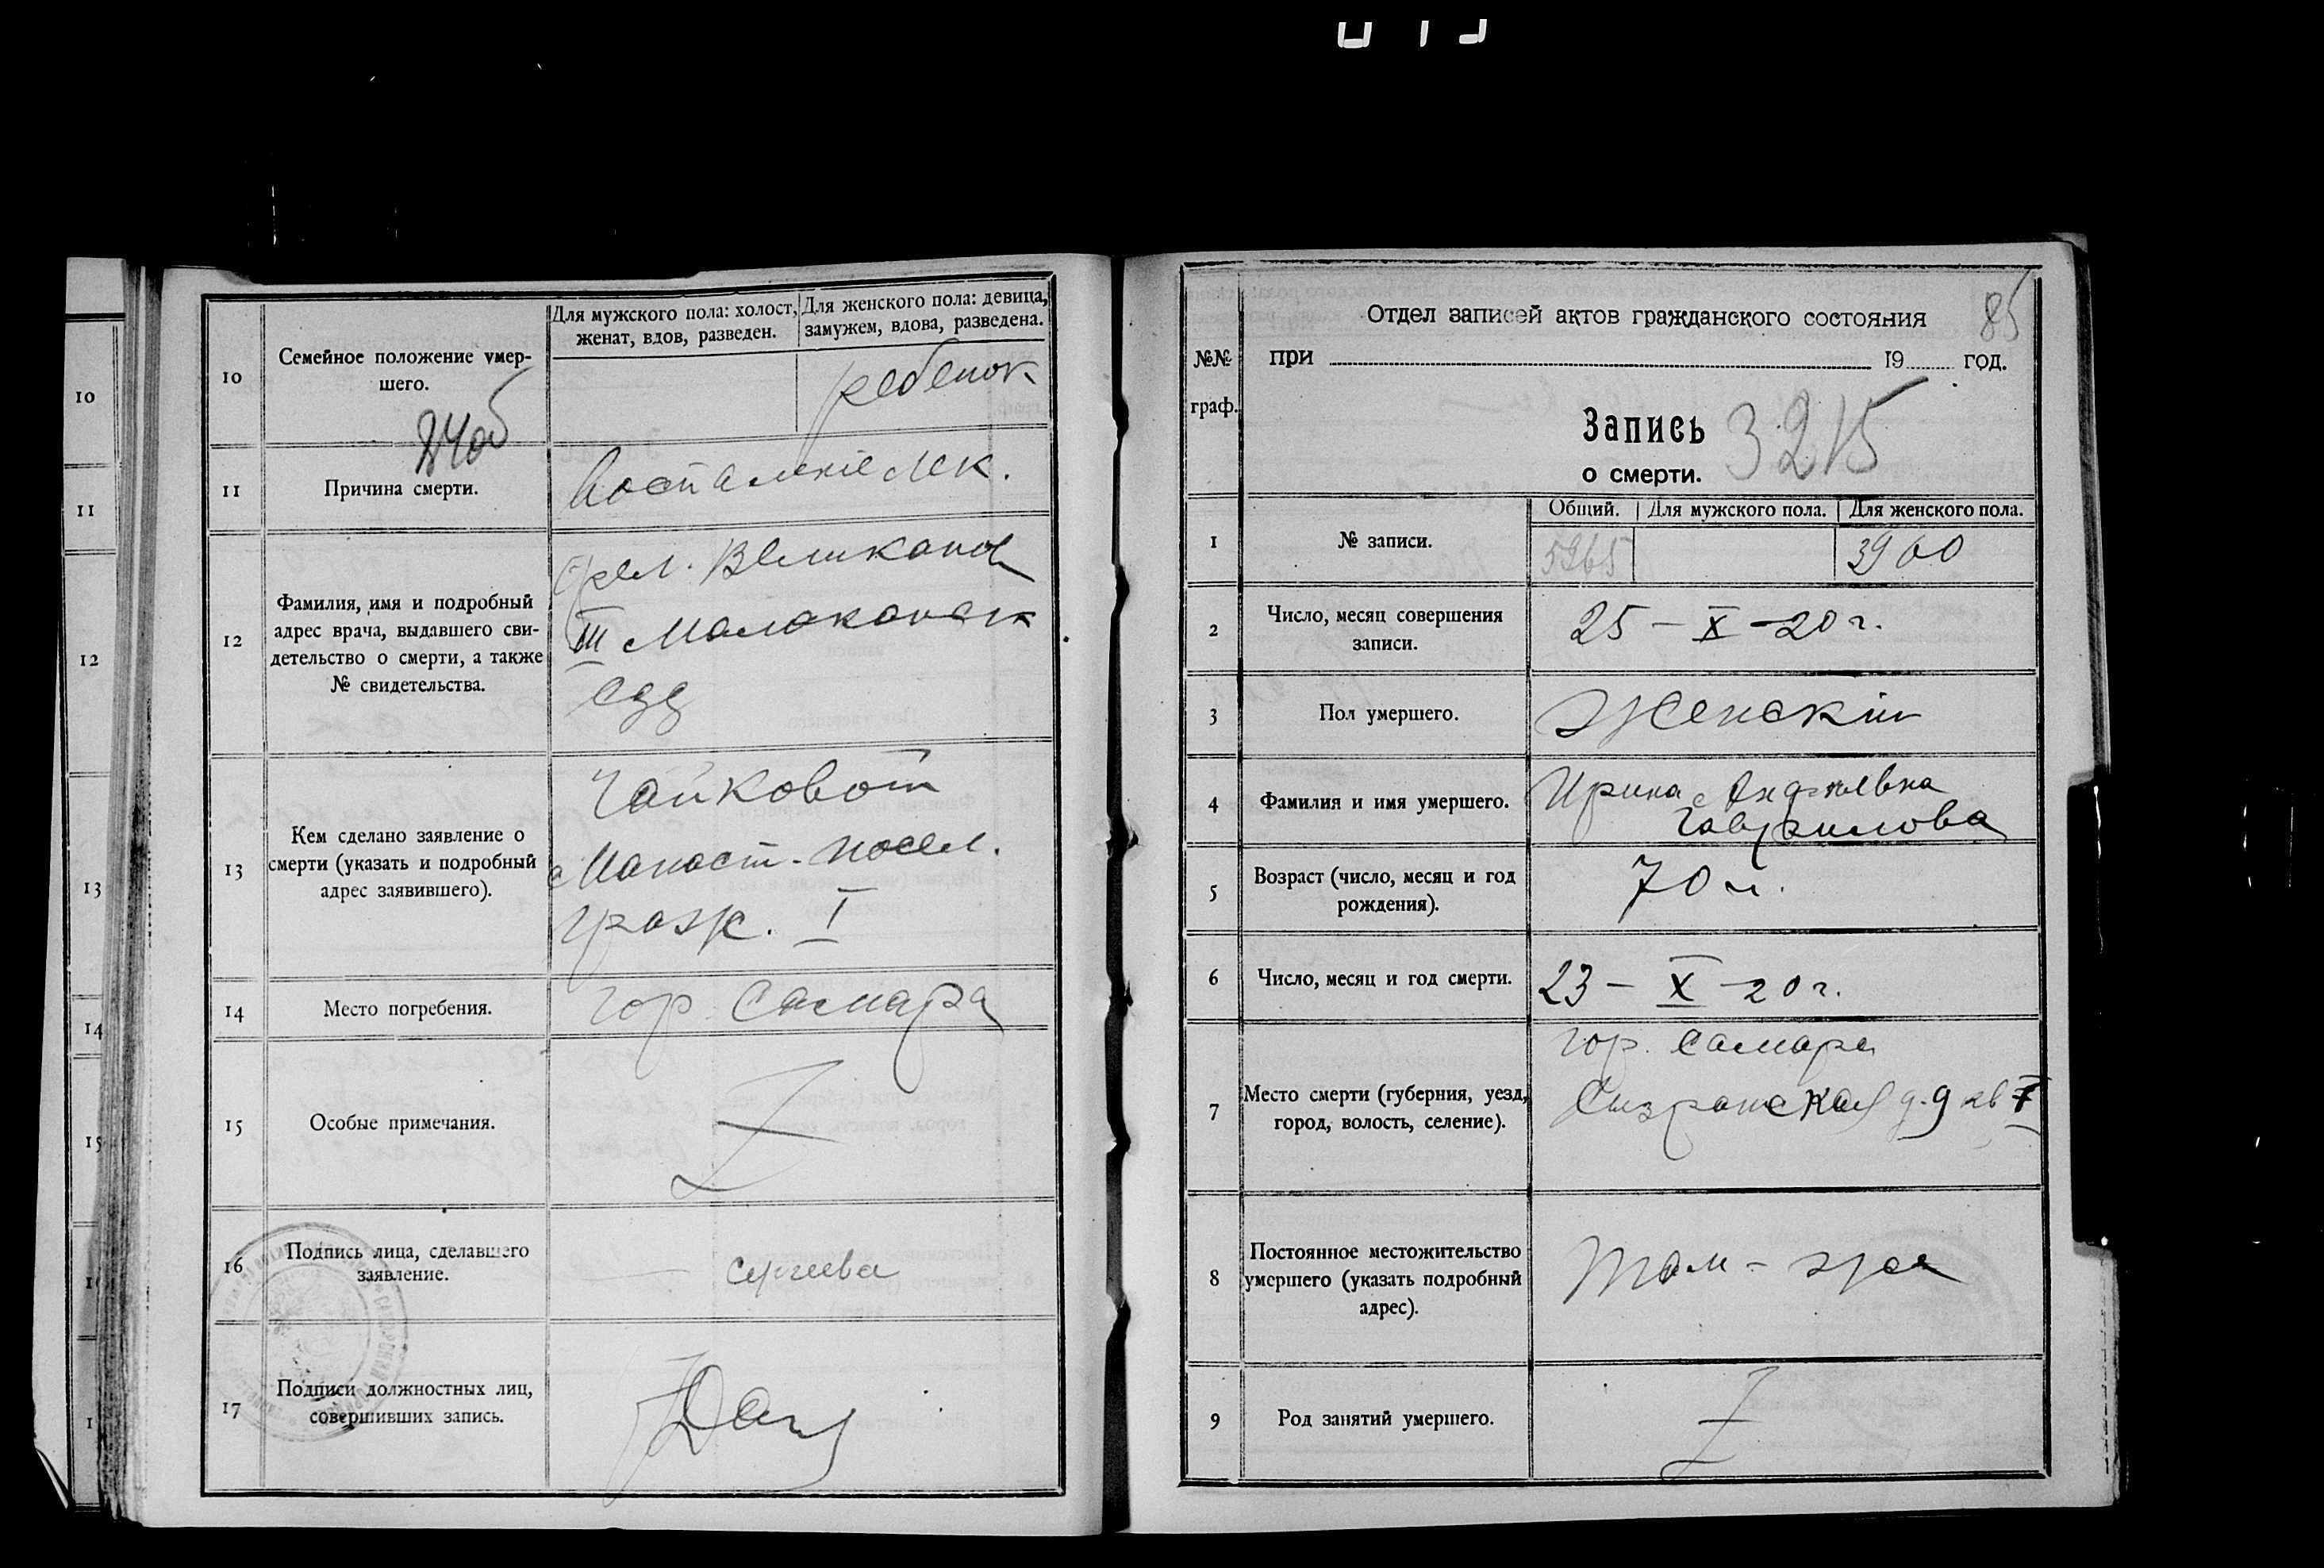 10
11
12
13
14
15
10
Семейное положение умер-
шего.
Для мужского пола: холост,
женат, вдов, разведен.
Для женского пола: девица,
замужем, вдова, разведена.
ребенок
84об
11
Причина смерти.
Воспаление лек.
12
Фамилия, имя и подробный
адрес врача, выдавшего сви-
детельство о смерти, а также
№ свидетельства.
Великанов
III Молоканск
сад
13
Кем сделано заявление о
смерти (указать и подробный
адрес заявившего).
Чайковой
Манаст. посел.
I
14
Место погребения.
гор. Самара
15
Особые примечания.
16
Подпись лица, сделавшего
заявление.
Сергеева
17
Подписи должностных лиц,
совершивших запись.
85
№№
граф.
Отдел записей актов гражданского состояния
при 19 год.
Запись
о смерти.
3215
1
№ записи.
Общий.
Для мужского пола.
Для женского пола.
5965
3960
2
Число, месяц совершения
записи.
25 – X – 20 г.
3
Пол умершего.
Женский
4
Фамилия и имя умершего.
Ирина
Гаврилова
5
Возраст (число, месяц и год
рождения).
70 л.
6
Число, месяц и год смерти.
23 – X – 20 г.
7
Место смерти (губерния, уезд,
город, волость, селение).
гор. Самара
Сызранская д. 9 кв
8
Постоянное местожительство
умершего (указать подробный
адрес).
Там – же
9
Род занятий умершего.